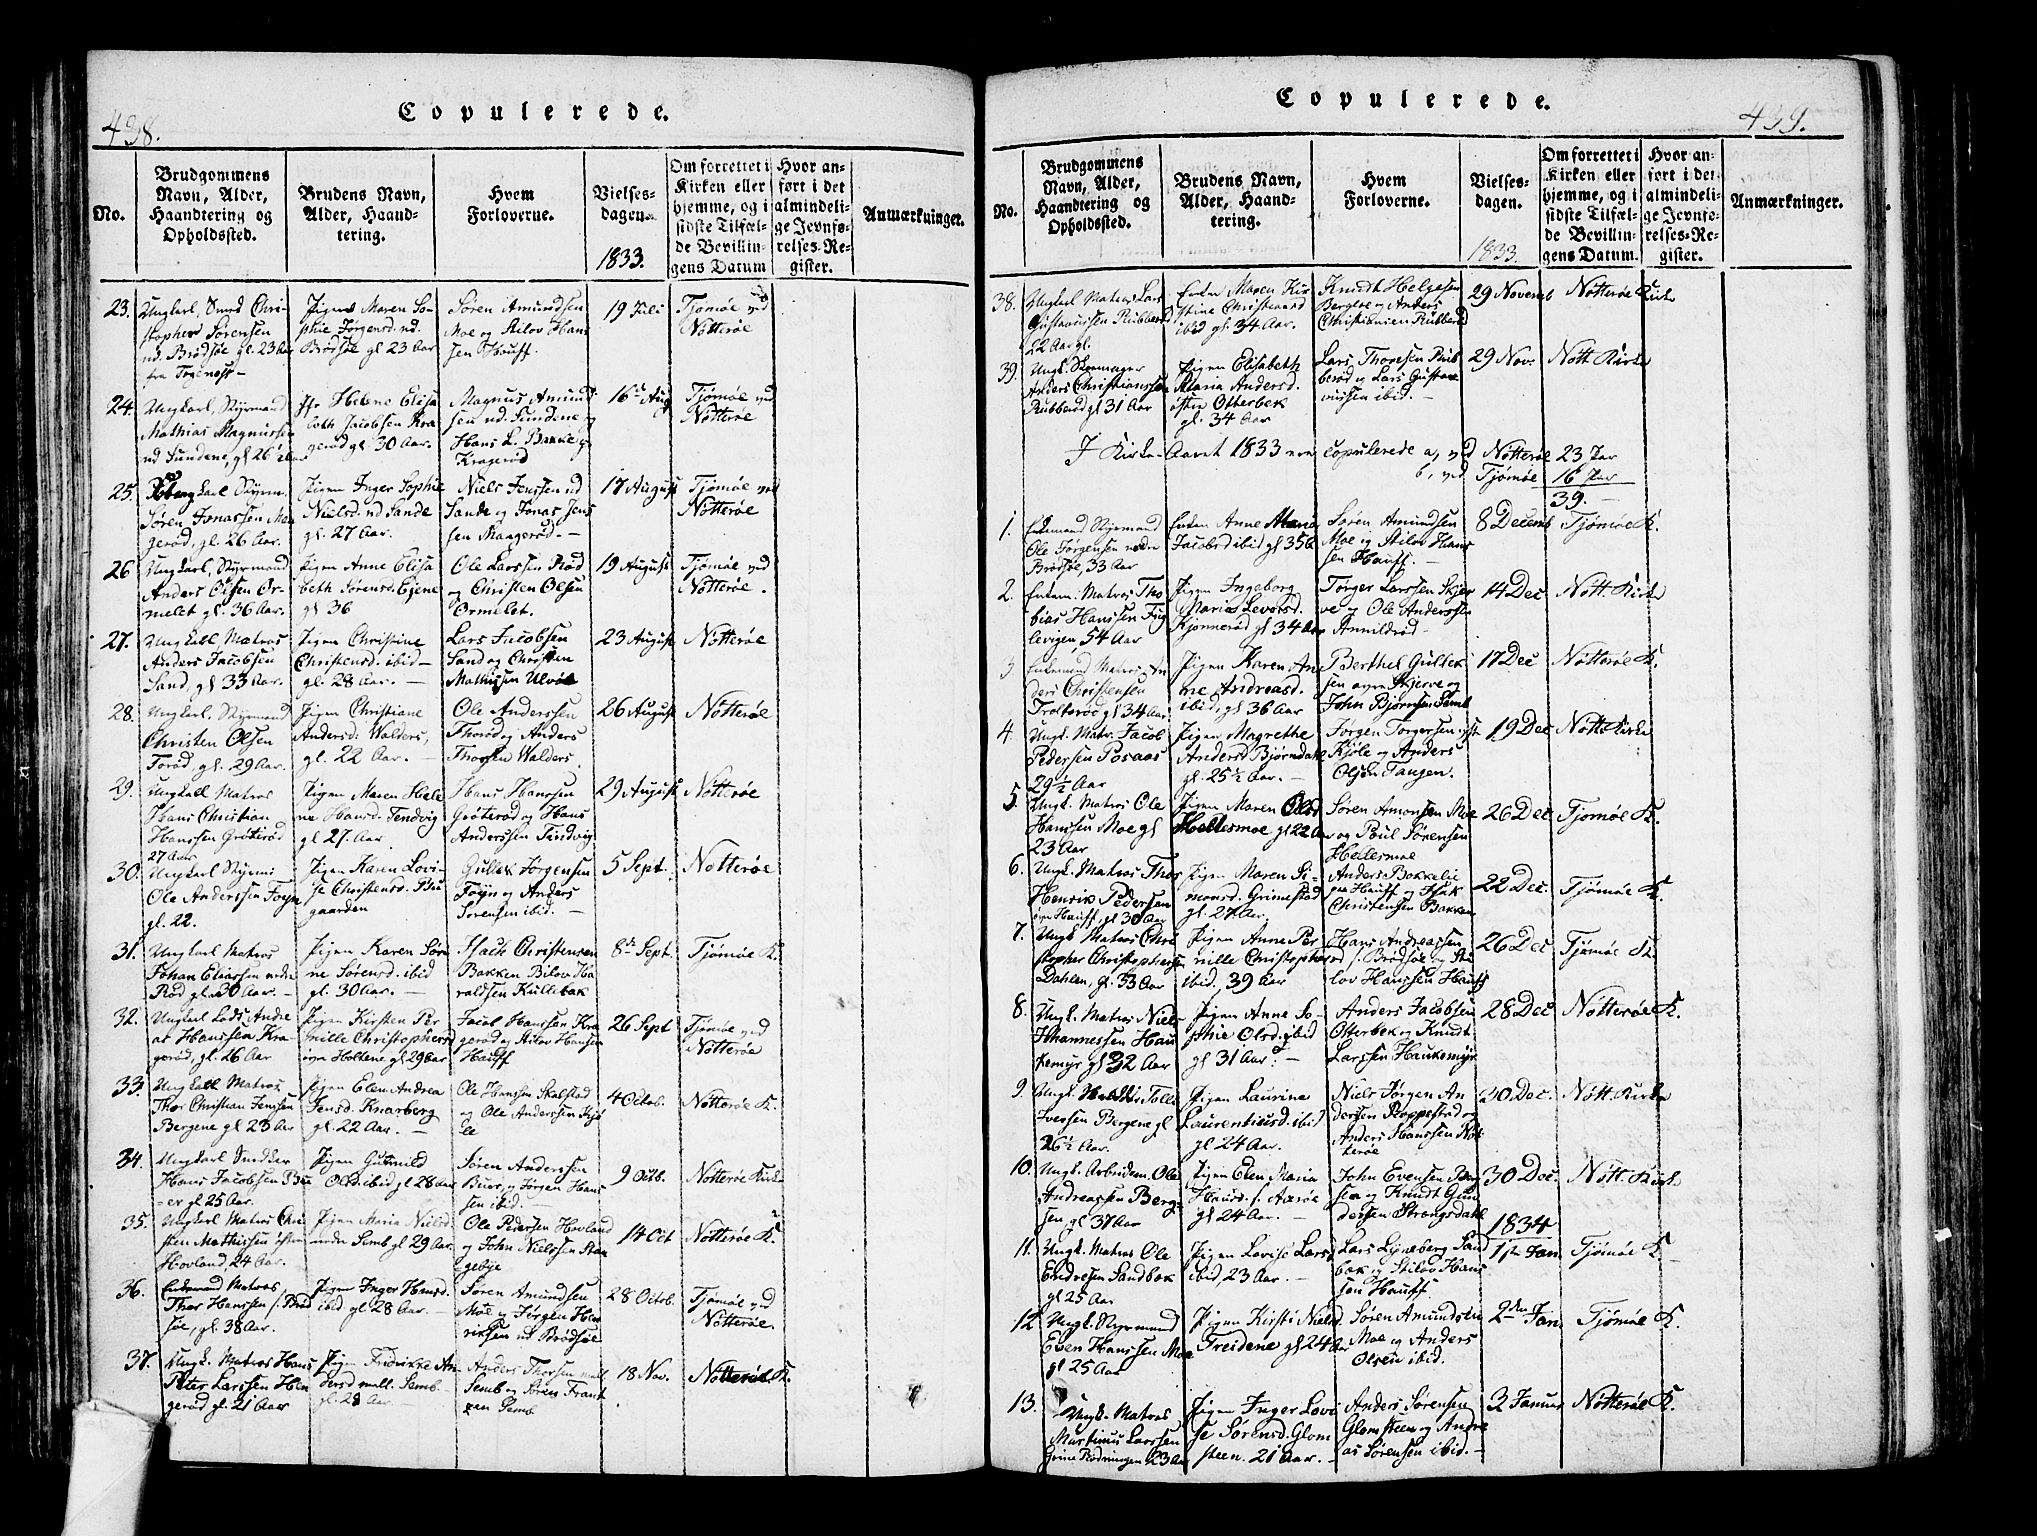 438.
Copulerede.
No.
Brudgommens
Navn, Alder,
Haandtering og
Opholdssted.
Brudens Navn,
Alder, Haand-
tering.
Hvem
Forloverne.
Vielses-
dagen.
1833.
Om forrettet i
Kirken eller
hjemme, og i
sidste Tilfæl-
de Bevillin-
gens Datum
Hvor an-
ført i det
almindeli-
ge Jevnfø-
relses-Re-
gister.
Anmærkninger.
23.
Ungkarl, Chri-
stopher Sörensen
nd. Brödsöe gl. 23 Aar
Pigen Maren So-
phie Jörgensd. nd.
Brödsöe gl 23 Aar
Sören Amundsen
Moe og Stilov Hans
sen Hauff.
19 Juli
Tjömöe ved
Nötteröe
24.
Ungkarl, Styrmand
Mathias Magnussen
nd Sundene, gl 26 Aar
Jfr Helene Elisa
beth Jacobsen Kra
gerød gl. 30 Aar.
Magnus Amund
sen nd. Sundene og
Hans L. Bakke
Kragerød
16de Aug
Tjömöe ved
Nötteröe
25.
Ungkarl Styrm.
Sören Jonassen Maa
gerød, gl. 26 Aar.
Pigen Inger Sophie
Nielsd. nd Sande
gl. 27 Aar.
Niels Jenssen nd
Sande og Jonas Jens
sen Maagerød. —
17 August
Tjömöe ved
Nötteröe
26
Ungkarl, Styrmand
Anders Olsen Or-
melet gl. 36 Aar.
Pigen Anne Elisa
beth Sörensd. Ejene
gl 36
Ole Larssen Röd
og Christen Olsen
Ormelet.
19 August
Tjömöe ved
Nötteröe.
27.
Ungkarl Matros
Anders Jacobsen
Sand, gl 33 Aar.
Pigen Christine
Christensd. ibid —
gl. 28 Aar. —
Lars Jacobsen
Sand og Christen
Mathissen Ulvöe
23 August
Nötteröe
28.
Ungkarl, Styrmand
Christen Olsen
Torød, gl. 29 Aar.
Pigen Christiane
Andersd. Walders,
gl. 22 Aar. —
Ole Anderssen
Thorød og Anders
Thorsen Walders.
26 August
Nötteröe
29.
Ungkarl Matros
Hans Christian
Hanssen Gröterød
27 Aar
Pigen Maren Hele
ne Hansd. Tendvig
gl. 27. Aar
Hans Hanssen
Gröterød og Hans
Anderssen Tendvig
29 August
Nötteröe
30.
Ungkarl Styrm:
Ole Anderssen Foyn
gl. 22.
Pigen Karen Lovi-
se Christensd. Bu
gaarden
Gullek Jörgensen
Foyn og Anders
Sörensen ibid. —
5 Sept.
Nötteröe
31.
Ungkarl Matros
Johan Eliassen nedre
Röd gl. 30 Aar. —
Pigen Karen Söre
ne Sörensd. ibid
gl. 30 Aar. —
Isach Christensen
Bakken Bilov Ha
raldsen Kullebak
8de Sept.
Tjömöe K.
32.
Ungkarl Lods Andre
as Hanssen Kra
gerød, gl. 26 Aar
Pigen Kirsten Per
nille Christophersd
övre Holtene gl 29 Aar
Jacob Hanssen Kra
gerød og Stilov Hansen
Hauff
26 Sept
Tjömöe ved
Nötteröe
33.
Ungkarl Matros
Thor Christian Jenssen
Bergene gl 23 Aar
Pigen Elen Andrea
Jensd. Knarberg
gl. 22 Aar. —
Ole Hanssen Skalstad
og Ole Anderssen Kjö
le
4 Octob.
Nötteröe K.
34.
Ungkarl Snedker
Hans Jacobsen Bu
er gl 25 Aar.
Pigen Gunnild
Olsd. ibid gl 28 Aar
Sören Anderssen
Buer og Jörgen Hans
sen ibid. —
9 Octb.
Nötteröe Kirke
35.
Ungkarl Matros Chri
sten Mathissen östen
Hovland, 24 Aar.
Pigen Maria Nielsd.
nedre Semb gl 29 Aar.
Ole Pedersen Hovland
og John Nielssen
14 Oct
Nötteröe K.
36.
Enkemand Matros
Thor Hanssen Bröd
söe, gl. 38 Aar.
Pigen Inger Hansd.
ibid gl 28 Aar. —
Sören Amundsen
Moe og Jörgen Hen
richsen nd. Brödsöe
28 Octob.
Tjömöe ved
Nötteröe.
37.
Ungk. Matros Hans
Peter Larssen Hin
gerød gl. 21 Aar
Pigen Fredrikke An
dersd mell. Semb.
gl. 28 Aar —
Anders Thorssen mell
Semb og Sören Frant
zen Semb.
18 Nov.
Nötteröe K.
Copulerede.
439.
No.
Brudgommens
Navn, Alder,
Haandtering og
Opholdssted.
Brudens Navn,
Alder, Haand-
tering.
Hvem
Forloverne.
Vielses-
dagen.
1833.
Om forrettet i
Kirken eller
hjemme, og i
sidste Tilfæl-
de Bevillin-
gens Datum.
Hvor an-
ført i det
almindeli-
ge Jevnfø-
relses-Re-
gister.
Anmærkninger.
38.
Ungkarl Matros Lars
Gustavussen Rubberød
22 Aar gl.
Enken Maren Kir
stine Christiansd
ibid gl. 34 Aar.
Knudt Helgesen
Bergløe og Anders
Christiansen Rubberød
29 Novemb
Nötteröe Kirke
39.
Ungk. Skomager
Anders Christianssen
Rubberød gl 31 Aar
Pigen Elisabeth
Maria Andersd.
östen Otterbek
gl. 34 Aar.
Lars Thoresen Rub
berød og Lars Gusta
vussen ibid. —
29 Nov.
Nött. Kirke
I Kirke-Aaret 1833 ere copulerede a, ved Nötteröe 23 Par
b, ved Tjömöe 16 Par
39. —
1.
Enkemand Styrmand
Ole Jörgensen nedre
Brödsöe, 33 Aar
Enken Anne Maria
Jacobsd ibid gl 35
Sören Amundsen
Moe og Stilov Hans
sen Hauff. —
8 Decemb
Tjömöe K.
2.
Enkem. Matros Tho
bias Hanssen Fug
levigen, 54 Aar
Pigen Ingeborg
Maria Leversd.
Kjönnerød gl 34 Aar
Törger Larssen Skjer
ve og Ole Anderssen
14 Dec
Nött. Kirke
3
Enkemand Matros An
ders Christensen
Trolterød gl 34 Aar
Pigen Karen An
ne Andreasd.
ibid, gl 36 Aar
Berthel Gullek
sen övre Skjerve og
John Björnsen Semb
17 Dec
Nötteröe K.
4
Ungk. Matr. Jacob
Pedersen Posaas
29½ Aar
Pigen Magrethe
Andersd Björndal
gl. 25½ Aar. —
Jörgen Torgersen
Kjöle og Anders
Olsen Tangen.
19 Dec
Nött. Kirke
5.
Ungk. Matros Ole
Hanssen Moe gl
23 Aar
Pigen Maren Olsd
Hellesmoe gl 22 Aar
Sören Amonssen Moe
og Poul Sörensen
Hellesmoe
26 Dec
Tjömöe K.
6.
Ungk. Matros Thor
Henrik Pedersen
övre Hauff, gl 30 Aar
Pigen Maren Si-
monsd. Grimestad
gl. 27 Aar.
Anders Bakkelie
Hauff og Isak
Christensen Bakken
22 Dec.
Tjömöe K.
7.
Ungk Matros Chri
stopher Christophersen
Dahlen, gl. 33 Aar
Pigen Anne Per
nille Christopher
ibid, 39 Aar
Hans Andreassen
Brödsöe og Sti
lov Hanssen Hauff
26 Dec
Tjömöe K.
8.
Ungk. Matros Niels
Johannessen Hau
kemyr gl 32 Aar
Pigen Anne So-
phie Olsd. ibid
gl 31 Aar. —
Anders Jacobsen
Otterbek og Knudt
Larssen Haukemyr
28 Dec
Nötteröe K.
9.
Ungk. Tolle
Iverssen Bergene gl
26½ Aar.
Pigen Laurine
Laurentiusd. ibid
gl. 24 Aar.
Niels Jörgen An
derssen Kloppestad og
Anders Hanssen Nöt
teröe
30 Dec.
Nött. Kirke
10.
Ungk. Arbeidsm. Ole
Andreassen Berg-
sen, gl 37 Aar
Pigen Elen Maria
Hansd.
gl 24 Aar. —
John Evensen
og Knudt Gun
derssen Strengsdahl
30 Dec.
Nött. Kirke
1834
11.
Ungk. Matros Ole
Endresen Sandbæk
gl 25 Aar
Pigen Lovise Larsd
ibid, 23 Aar. —
Lars Lyneberg Sand
bek og Stilov Hans
sen Hauff.
1ste Jan.
Tjömöe K.
12
Ungk. Styrmand
Even Hanssen Moe
gl 25 Aar
Pigen Kirsti Nielsd.
Treidene gl 24 Aar
Sören Amundsen
Moe og Anders
Olsen ibid.
2den Jan.
Tjömöe K.
13.
Ungk. Matros
Martinus Larssen
Grine Rödningen 23 Aar
Pigen Inger Lovi
se Sörensd. Glom
steen. 21 Aar. —
Anders Sörensen
Glomsteen og Andre
as Sörensen ibid. —
3 Januar
Nötteröe K.